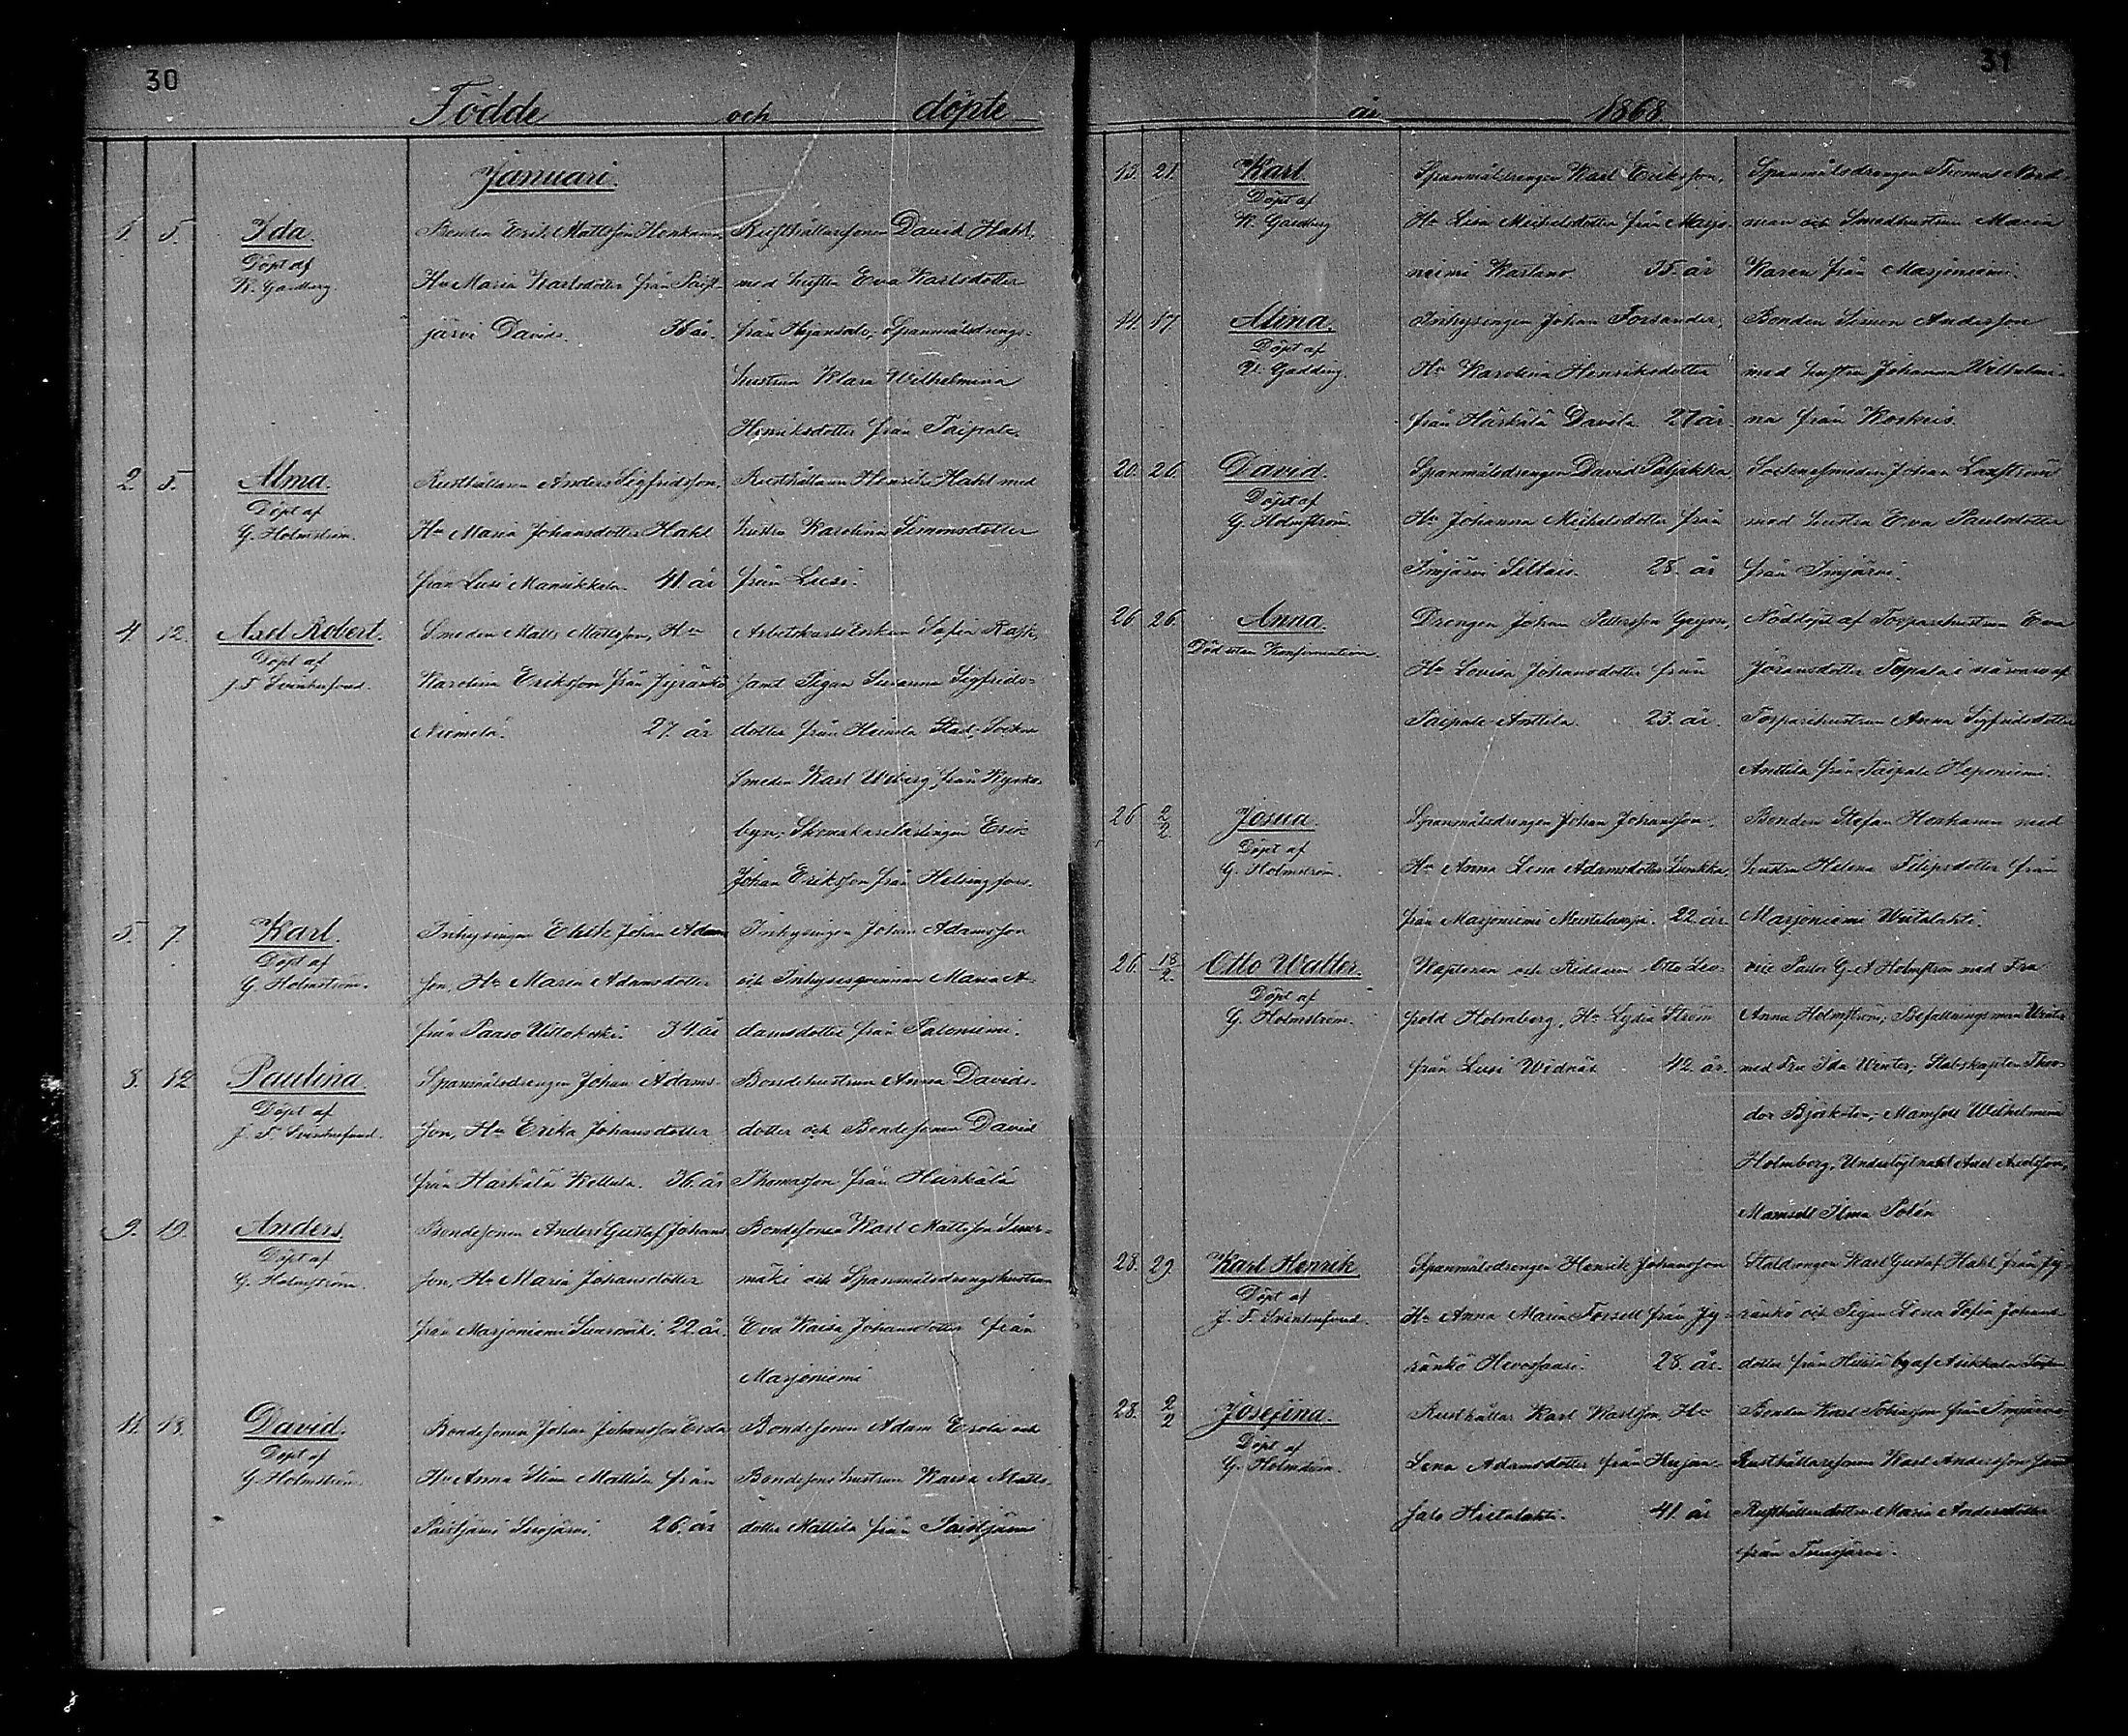 30
Födde och döpte
Januari.
1. 5. Ida.
Döpt af
K. Gadding.
Bonden Erik Mattsson Honkanen,
Hu Maria Karlsdotter från Paist-
järvi Davids. 36 år.
Rusthållaresonen David Hahl,
med hustru Eva Karlsdotter
från Spanmålsdrengs-
hustrun Klara Wilhelmina
Henriksdotter från Taipale.
2. 5. Alma.
Döpt af
G. Holmström.
Rusthållaren Anders Sigfridsson,
Hu Maria Johansdotter Hahl
från Lusi Mansikkala. 41 år
Rusthållaren Henrik Hahl med
hustru Karolina Simonsdotter
från Lusi.
4. 12. Axel Robert.
Döpt af
J. F.
Smeden Matts Mattsson, Hu
Karolina Eriksson från Jyränkö
Niemelä. 27. år
Arbetskarls Enkan Sofia Rask,
samt Pigan Susanna Sigfrids-
dotter från Heinola Stad, Socken
Smeden Karl Wiberg från Kyrko-
byn, Skomakarelärlingen Erik
Johan Eriksson från Helsingfors.
5. 7. Karl.
Döpt af
G. Holmström.
Inhysingen Johan Adams
son, Hu Maria Adamsdotter
från Paaso 34. år
Inhysingen Johan Adamsson
och Inhysesqvinnan Maria A-
damsdotter från Taloniemi.
8. 12 Paulina.
Döpt af
J. F.
Spanmålsdrengen Johan Adams-
son, Hu Erika Johansdotter
från Härkälä Kellula. 36. år
Bondehustrun Anna Davids-
dotter och Bondesonen David
Thomasson från Härkälä
9. 19. Anders.
Döpt af
G. Holmström.
Bondesonen Anders Gustaf Johans
son, Hu Maria Johansdotter
från Marjoniemi Suurmäki. 22. år.
Bondesonen Karl Mattsson Suur-
mäki och Spanmålsdrengshustrun
Eva Kaisa Johansdotter från
Marjoniemi
11. 18. David.
Döpt af
G. Holmström.
Bondesonen Johan Johansson Erola
Hu Anna Stina Mattila från
Paistjärvi 26. år
Bondesonen Adam Erola och
Bondesons hustrun Kaisa Matts-
dotter Mattila från Paistjärvi
31
år 1868
13. 21. Karl.
Döpt af
K. Gadding
Spanmålsdrengen Karl Eriksson,
Hu Lisa Michelsdotter från Marjo-
niemi Kartano. 35. år
Spanmålsdrengen Thomas Nord-
man och Smedhustrun Maria
Karen från Marjoniemi.
14. 17. Alina.
Döpt af
K. Gadding.
Inhysingen Johan Forsander,
Hu Karolina Henriksdotter
från Härkälä Davila. 27 år.
Bonden Simon Andersson
med hustru Johanna Wilhelmi-
na från Koskeis.
20. 26. David.
Döpt af
G. Holmström.
Spanmålsdrengen David Paljakka,
Hu Johanna Michelsdotter från
Imjärvi Siltais. 28. år
Sockensmeden Johan Laxström
med hustru Eva Paulsdotter
från Imjärvi.
26 26. Anna.
Död utan Konfirmation.
Drengen Johan Pettersson
Hu Lovisa Johansdotter från
Taipale Anttila. 23. år.
Nöddöpt af Torparehustrun Eva
Jöransdotter i närvaro af
Torparehustrun Anna Sigfridsdotter
Anttila från Taipale Heponiemi.
26 2/2 Josua.
Döpt af
G. Holmström.
Spanmålsdrengen Johan Johansson,
Hu Anna Lena Adamsdotter
från Marjoniemi 22. år.
Bonden Stefan Honkanen med
hustru Helena Filipsdotter från
Marjoniemi
26. 18/2. Otto Walter.
Döpt af
G. Holmström.
Kaptenen och Riddaren Otto Leo-
pold Holmberg, Hu Lydia Ström
från Lusi Widnäs 42. år.
vice Pastor G. A Holmström med Fru
Anna Holmström; Befallningsman Winter
med Fru Ida Winter; Stabskapten Theo-
dor Björksten; Mamsell Wilhelmina
Holmberg, Underlöjtnant Axel Axelsson,
Mamsell Ilma Polén
28. 29. Karl Henrik
Döpt af
J. F.
Spanmålsdrengen Henrik Johansson
Hu Anna Maria Forsell från Jy-
ränkö Hevossaari. 28. år.
Staldrengen Karl Gustaf Hahl från Jy-
ränkö och Pigan Lena Sofia Johans-
dotter från by af Asikkala Socken
28. 2/2 Josefina.
Döpt af
G. Holmström.
Rusthållar Karl Karlsson, Hu
Lena Adamsdotter från Hujan-
salo Hietalahti. 41. år
Bonden Karl Tobiasson från Imjärvi,
Rusthållaresonen Karl Andersson samt
Rusthållaredottern Maria Andersdotter
från